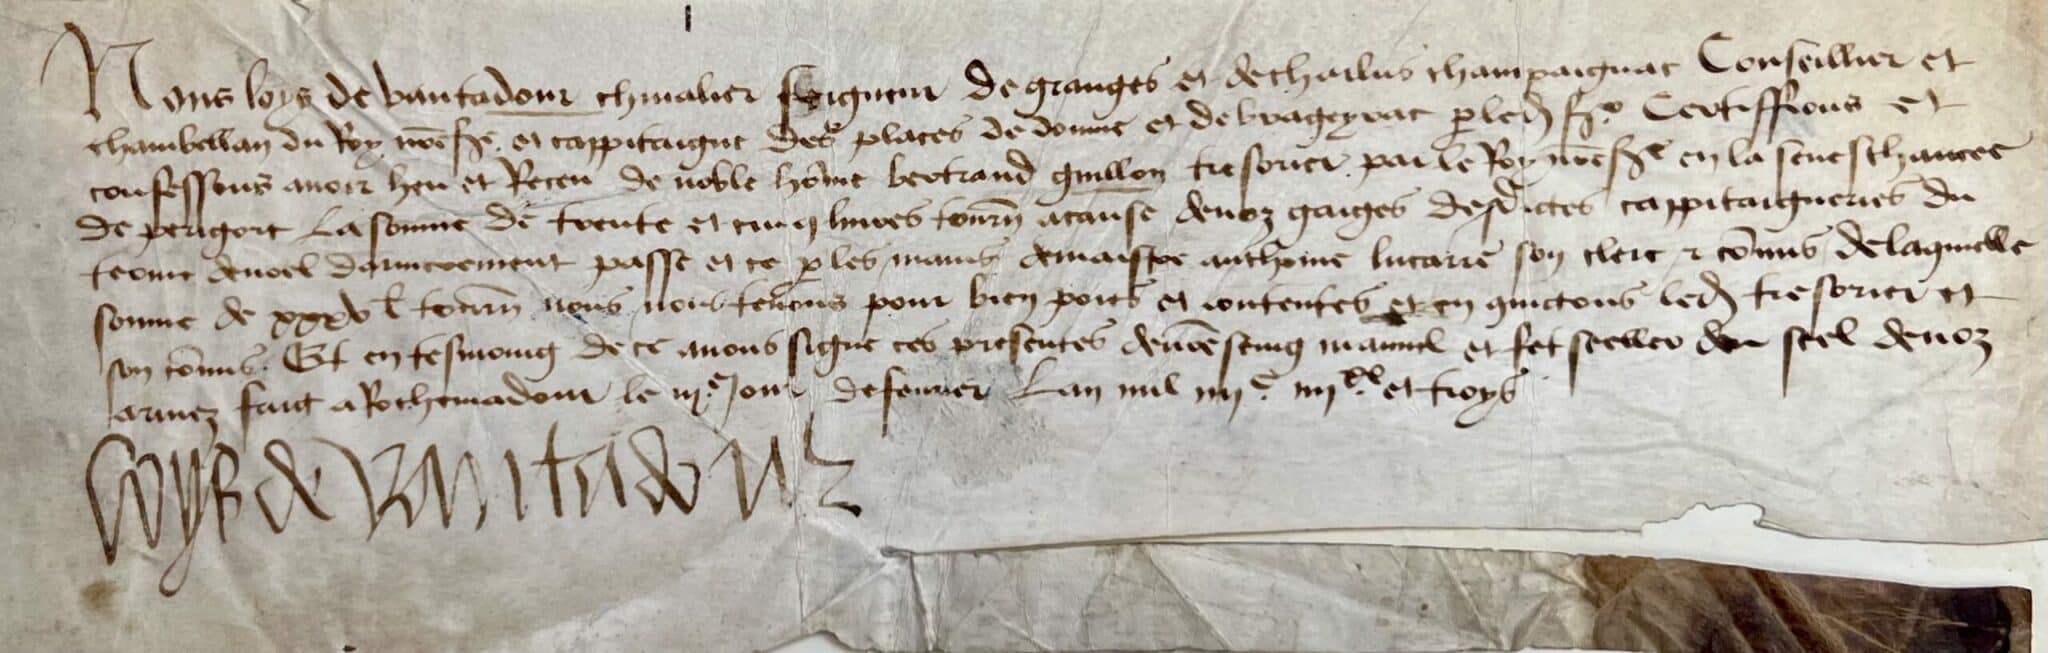 Nous loys de vantadour chevalier seigneur de granges et de charlus champaignac Conseillier et
chambellan du Roy nre sr. et cappitaigne des places de domme et de brageyrac p led sr Certiffions et
confessons avoir heu et Receu de noble home bertrand guillon tresorier par le Roy nre sr en la seneschaucee
de perigort La somme de trente et cinq livres tourn a cause de noz gaiges desdictes cappitaigneries du
terme de noel darnierement passe et ce p les mains de maistre anthoine lucarre son clerc & comis de laquelle
somme de xxxv l tourn nous nous tenons pour bien poies et contentes et en quictons led tresorier et
son comis. Et en tesmoing de ce avons signe ces presentes de nre seing manuel et fet seeller du scel de noz
armez fait a Rochemadour le iije jour de fevrier Lan mil iiijc. iiijxx et troys
Loys de Vantadour